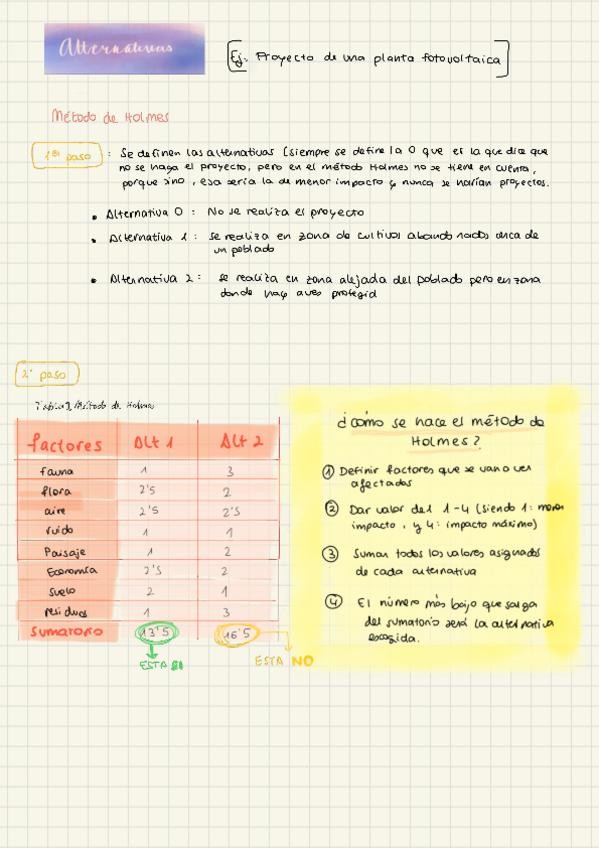 Alternativas
Ej: Proyecto de una planta fotovoltaica
Método de Holmes
1er paso : Se definen las alternativas (siempre se define la 0 que es la que dice que
no se haga el proyecto, pero en el método Holmes no se tiene en cuenta,
porque sino, esa sería la de menor impacto y nunca se harían proyectos.
• Alternativa 0 : No se realiza el proyecto
• Alternativa 1 : se realiza en zona de cultivos abandonados cerca de
un poblado
• Alternativa 2 : se realiza en zona alejada del poblado pero en zona
donde hay aves protegid
2º paso
Tabla 1, Método de Holmes
factores Alt 1 Alt 2
fauna 1 3
flora 2'5 2
aire 2'5 2'5
ruido 1 1
Paisaje 1 2
Economía 2'5 2
suelo 2 1
residuos 1 3
Sumatorio 13'5 16'5
ESTA SI
ESTA NO
¿Cómo se hace el método de
Holmes?
1 Definir factores que se van a ver
afectados
2 Dar valor del 1-4 (siendo 1: menor
impacto, y 4: impacto máximo)
3 Suman todos los valores asignados
de cada alternativa
4 El número más bajo que salga
del sumatorio será la alternativa
escogida.